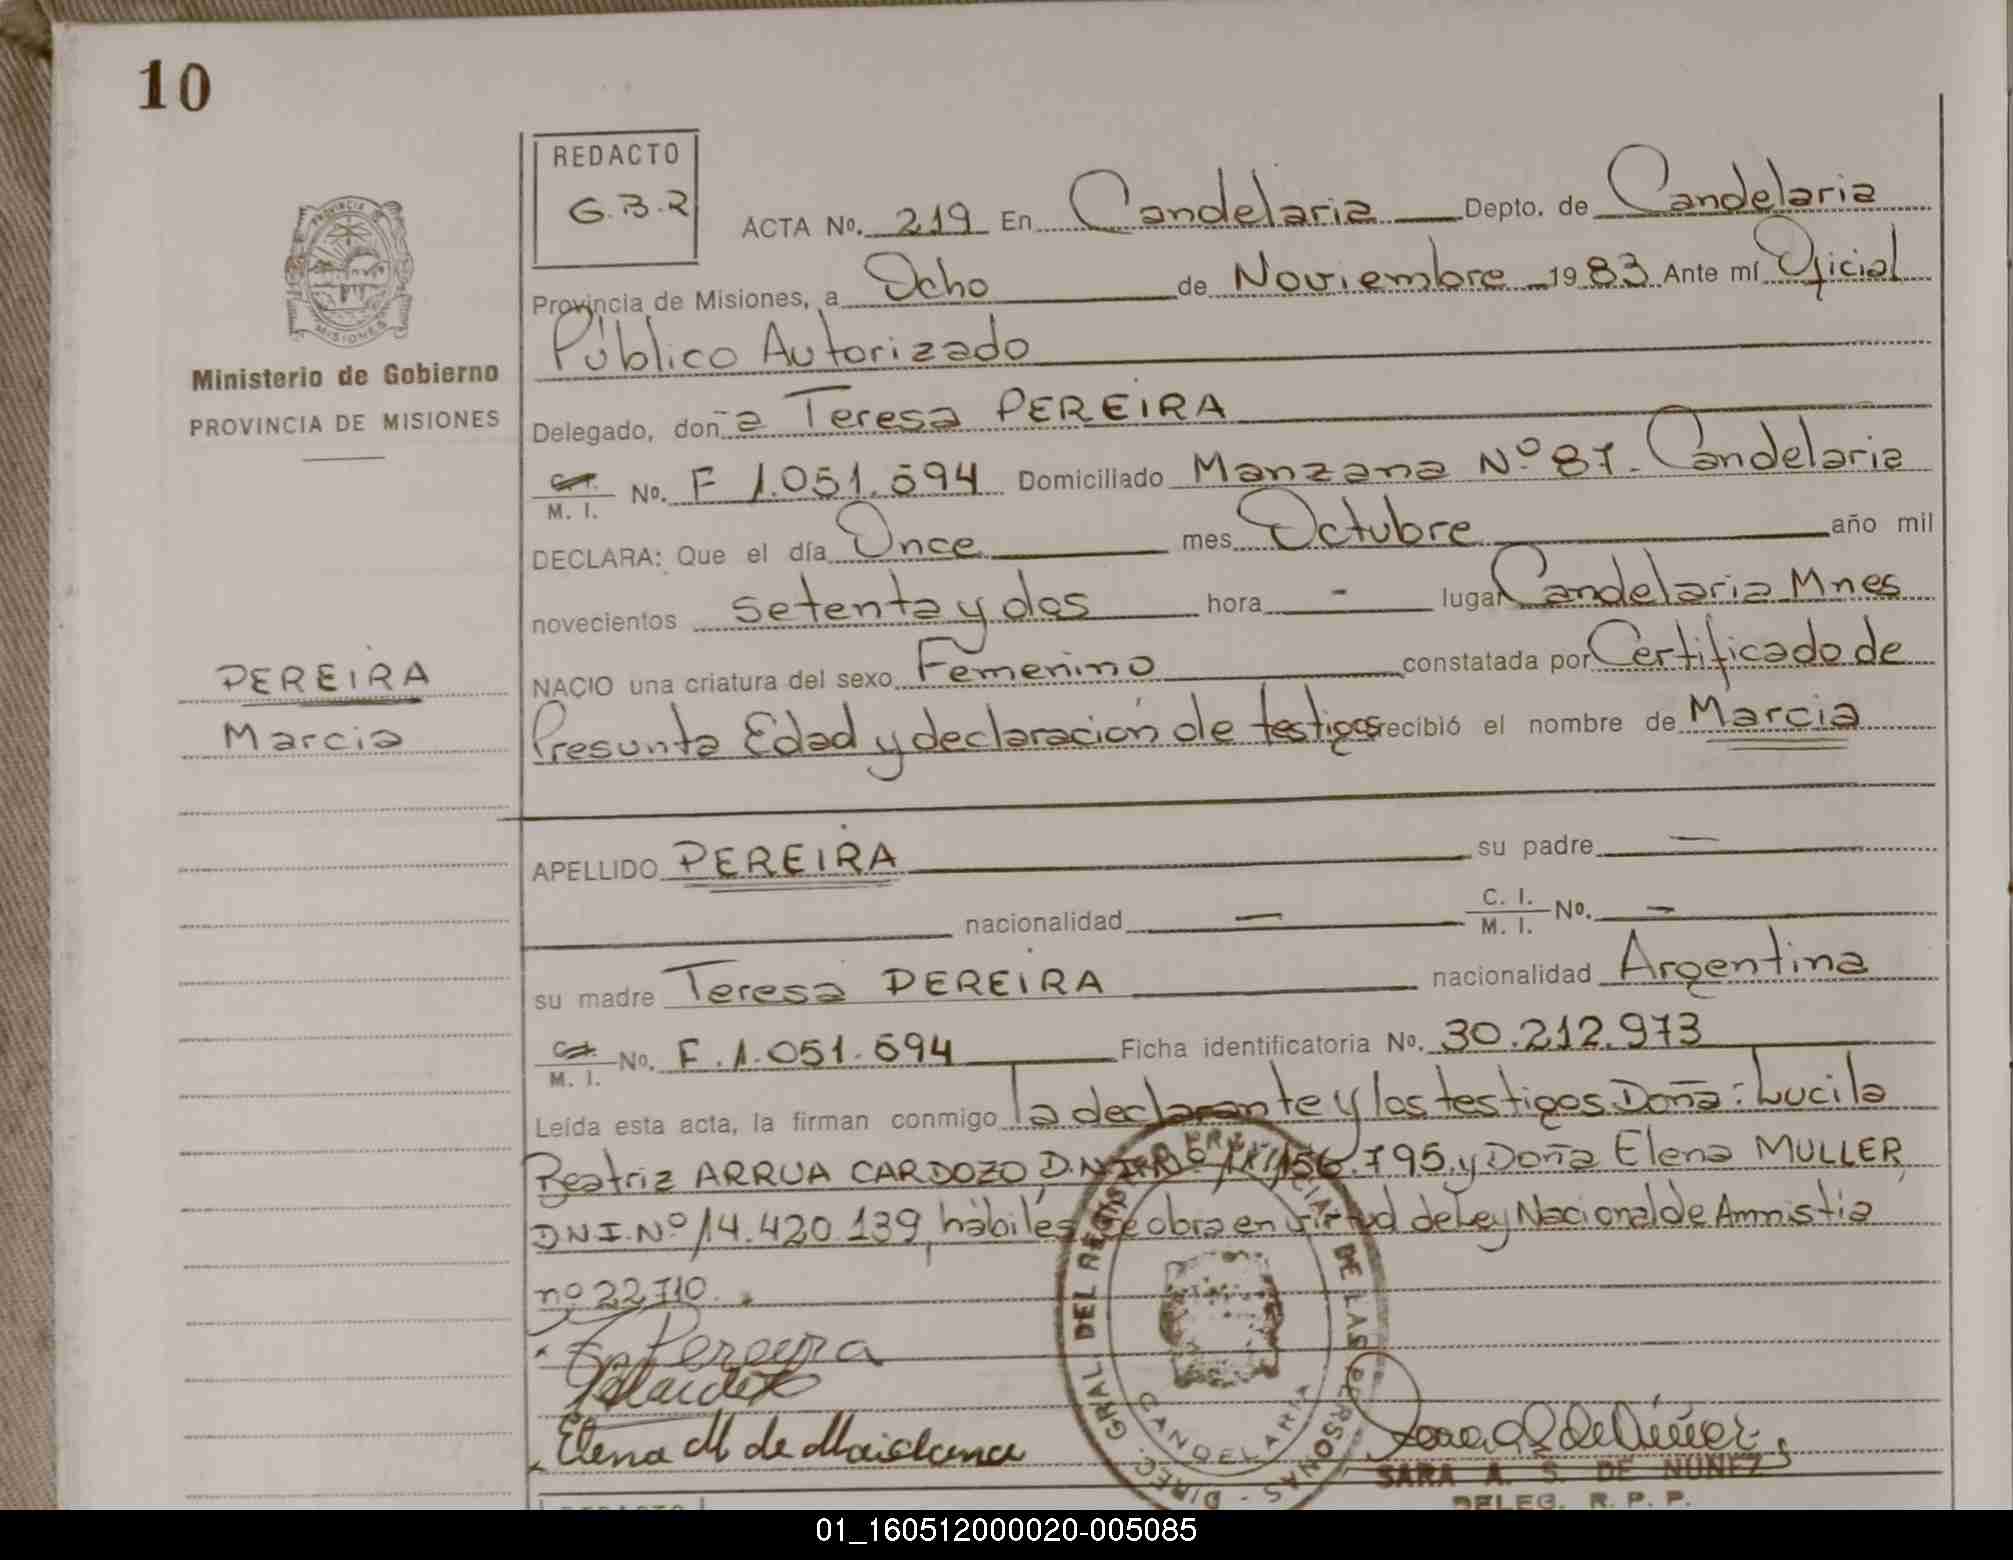 10
REDACTO
G.B.R
PROVINCIA DE
MISIONES
Ministerio de Gobierno
PROVINCIA DE MISIONES
ACTA No. 219 En Candelaria Depto. de Candelaria
Provincia de Misiones, a Ocho de Noviembre 1983 Ante mí Oficial
Público Autorizado
Delegado, doña Teresa PEREIRA
C.I. M. I. No. F 1.051.594 Domiciliado Manzana Nº 87. Candelaria
DECLARA: Que el día Once mes Octubre año mil
novecientos setenta y dos hora - lugar Candelaria Mnes
PEREIRA
Marcia
NACIO una criatura del sexo Femenino constatada por Certificado de
Presunta Edad y declaración de testigos recibió el nombre de Marcia
APELLIDO PEREIRA su padre —
nacionalidad — C. I. M. I. No. —
su madre Teresa PEREIRA nacionalidad Argentina
C.I. M. I. No. F.1.051.594 Ficha identificatoria No. 30.212.973
Leída esta acta, la firman conmigo la declarante y los testigos Doña: Lucila
Beatriz ARRUA CARDOZO, D.N.I. 156.795, y Doña Elena MULLER
DNI.Nº 14.420.139, hábiles, se obra en virtud de Ley Nacional de Amnistia
nº 22.710.
Pereyra
Elena M de Maidana
DIREC. GRAL. DEL REGIST DE LAS PERSONAS
CANDELARIA
SARA A. S. DE NUÑEZ
DELEG. R. P. P.
REDACTO
01_160512000020-005085